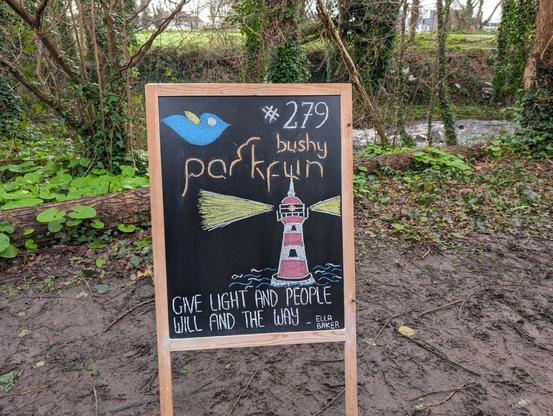 #279
bushy
parkfun
GIVE LIGHT AND PEOPLE
WILL AND THE WAY - ELLA
BAKER